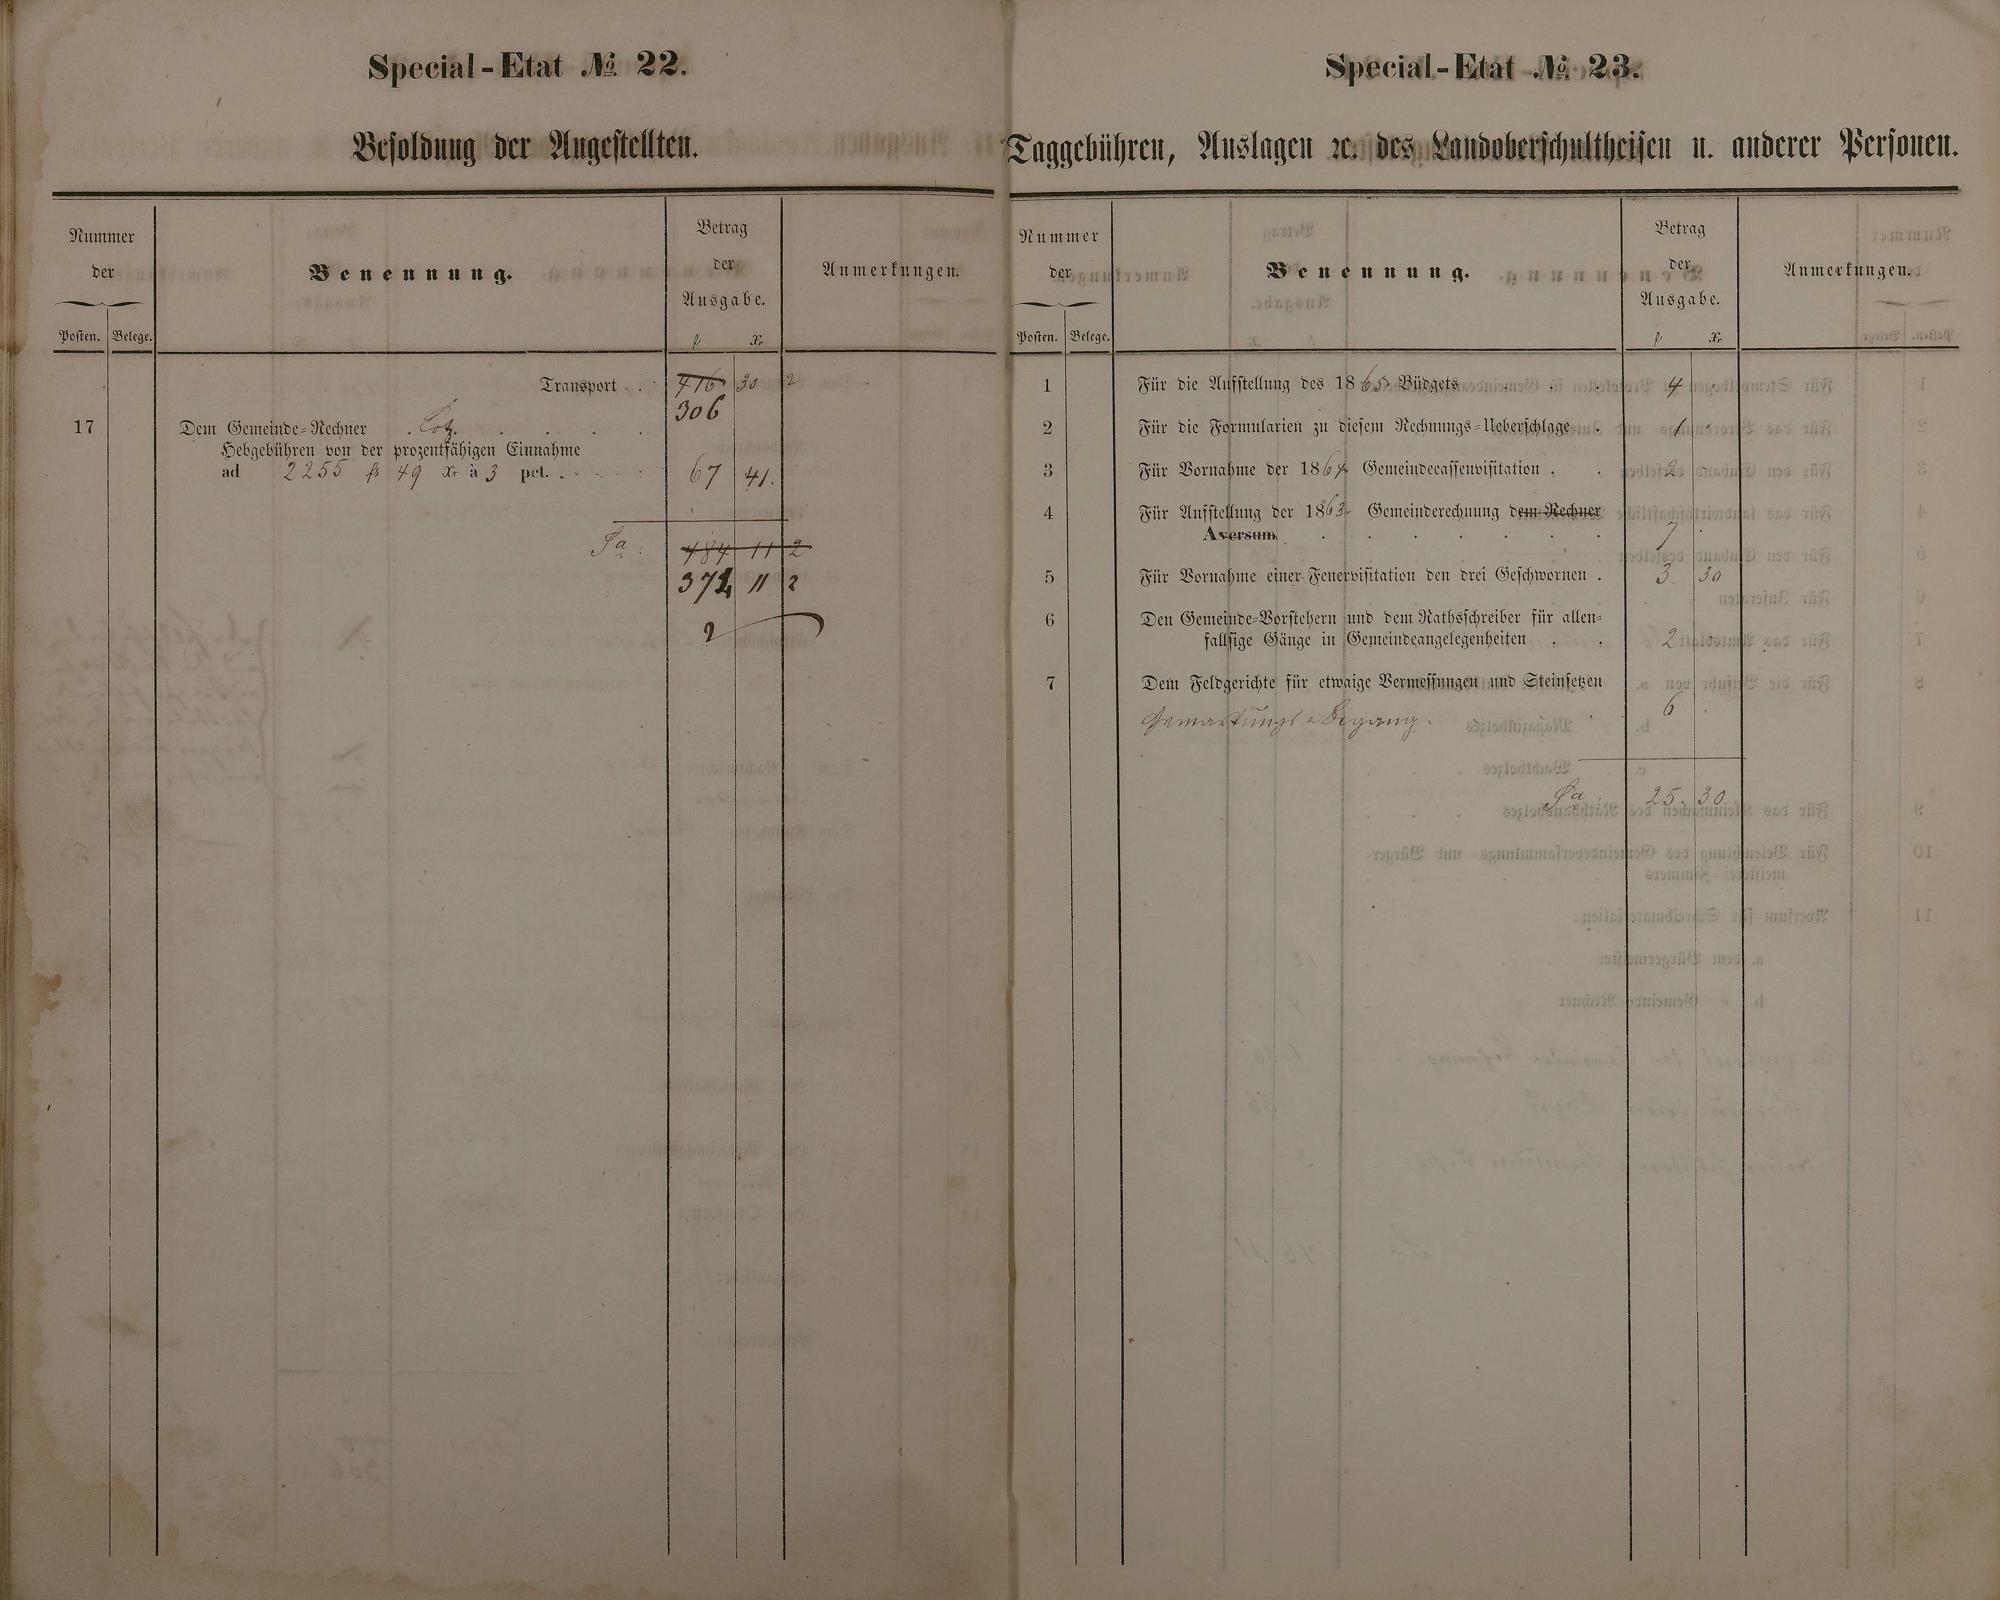 Special-Etat № 22.
Besoldung der Angestellten.
Nummer
der
Posten. Belege.
Benennung.
Betrag
der
Ausgabe.
fl Xr
Anmerkungen.
Transport . . 416 30 2
306
17 Dem Gemeinde-Rechner . Lotz. . . . .
Hebgebühren von der prozentfähigen Einnahme
ad 2255 fl 49 Xr à 3 pct. . . . . 67 41.
Sa : 484 11 2
374 11 2
Special-Etat № 23.
Taggebühren, Auslagen ꝛc. des Landoberschultheisen u. anderer Personen.
Nummer
der
Posten. Belege.
Benennung.
Betrag
der
Ausgabe.
fl Xr
Anmerkungen.
1 Für die Aufstellung des 1865r Büdgets . . . 4 .
2 Für die Formularien zu diesem Rechnungs-Ueberschlage . 1 .
3 Für Vornahme der 1864r Gemeindecassenvisitation . . 2 .
4 Für Aufstellung der 1863r Gemeinderechnung dem Rechner
Aversum . . . . . . . 7 .
5 Für Vornahme einer Feuervisitation den drei Geschwornen . 3 30
6 Den Gemeinde-Vorstehern und dem Rathsschreiber für allen-
fallsige Gänge in Gemeindeangelegenheiten . . 2 .
7 Dem Feldgerichte für etwaige Vermessungen und Steinsetzen
Gemarkungs-Begang. 6 .
Sa. 25. 30.